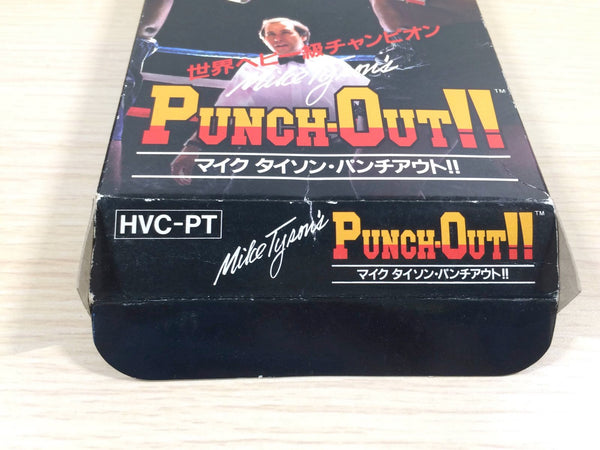 世界ヘビー級チャンピオン
Mike Tyson's
PUNCH-OUT!!™
マイク タイソン・パンチアウト!!
HVC-PT
Mike Tyson's
PUNCH-OUT!!™
マイク タイソン・パンチアウト!!